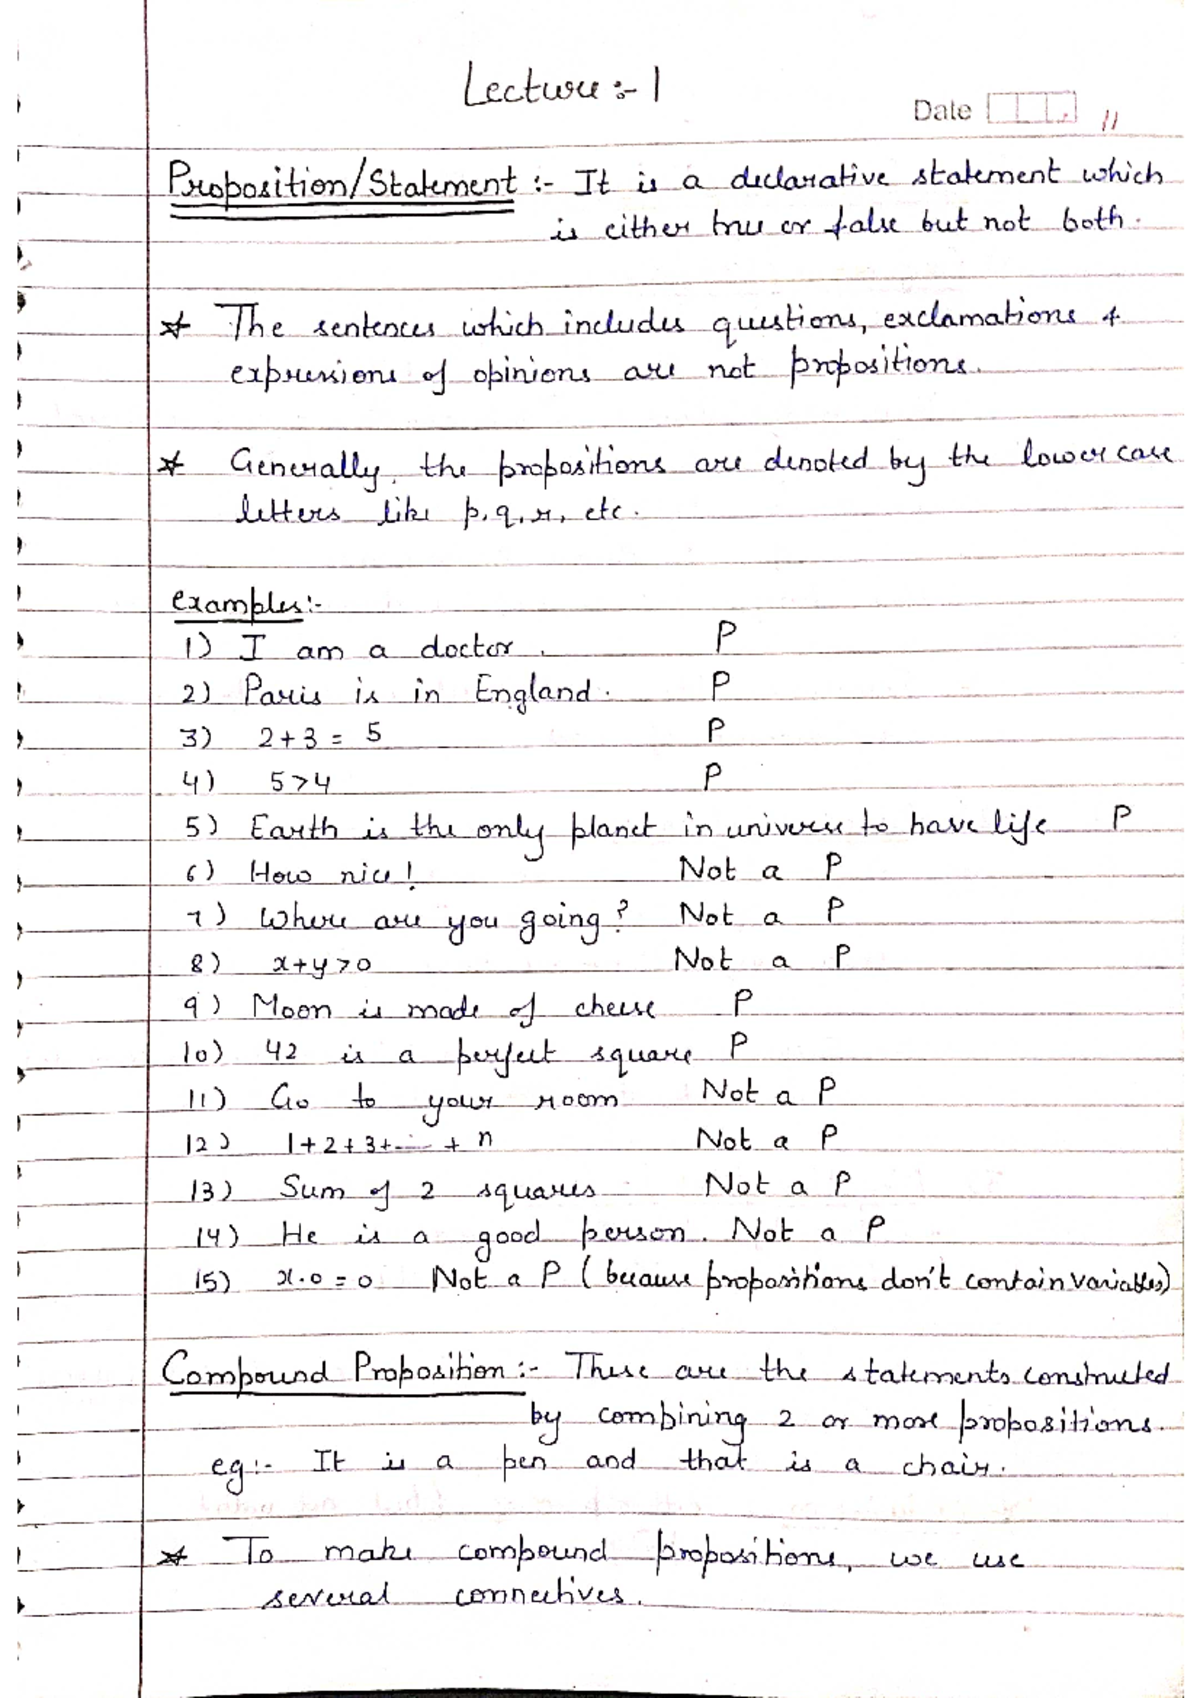 Lecture :- 1
Date
Proposition/Statement :- It is a declarative statement which
is either true or false but not both.
* The sentences which includes questions, exclamations &
expressions of opinions are not propositions.
* Generally, the propositions are denoted by the lower case
letters like p, q, r, etc.
examples:-
1) I am a doctor. P
2) Paris is in England. P
3) 2+3 = 5 P
4) 5>4 P
5) Earth is the only planet in universe to have life P
6) How nice! Not a P
7) Where are you going? Not a P
8) x+y>0 Not a P
9) Moon is made of cheese P
10) 42 is a perfect square P
11) Go to your room Not a P
12) 1+2+3+.....+ n Not a P
13) Sum of 2 squares Not a P
14) He is a good person. Not a P
15) x.0 = 0 Not a P (because propositions don't contain variables)
Compound Proposition:- These are the statements constructed
by combining 2 or more propositions.
eg:- It is a pen and that is a chair.
* To make compound propositions, we use
several connectives.